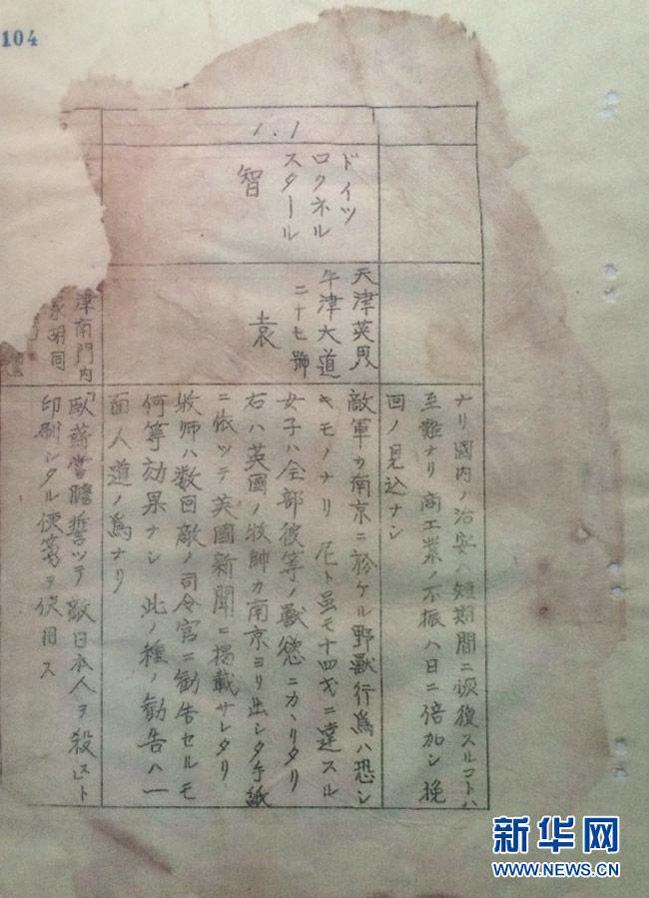 104
ナリ國内ノ治安ハ短期間ニ恢復スルコトハ
至難ナリ商工業ノ不振ハ日ニ倍加シ挽
回ノ見込ナシ
1.1
ドイツ
ロクネル
スタール
智
天津英界
牛津大道
二十七號
袁
敵軍カ南京ニ於ケル野獸行爲ハ恐シ
キモノナリ 尼ト虽モ十四才ニ達スル
女子ハ全部彼等ノ獸慾ニカヽリタリ
右ハ英國ノ牧師カ南京ヨリ出シタ手紙
ニ依ツテ英國新聞ニ掲載サレタリ
牧师ハ数回敵ノ司令官ニ勧告セルモ
何等効果ナシ 此ノ種ノ勧告ハ一
面人道ノ爲ナリ
津南門内
家胡同
「臥薪嘗膽誓ツテ敵日本人ヲ殺ス」ト
印刷シタル便箋ヲ使用ス
新华网
WWW.NEWS.CN